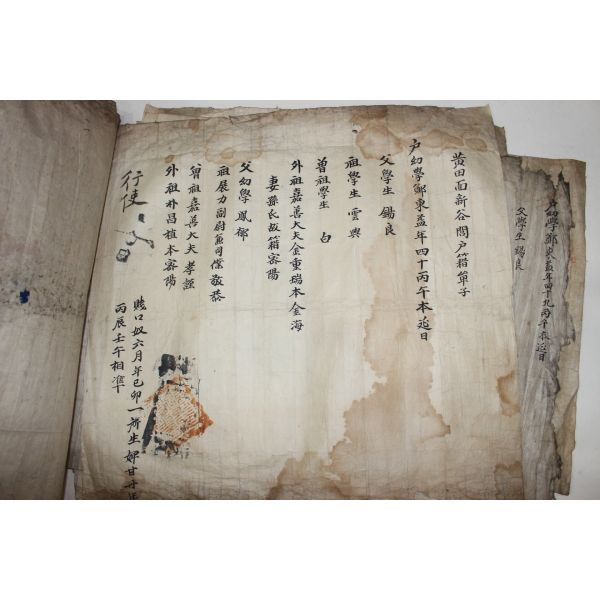 黃田面新谷閣戶籍單子
戶幼學鄭東益年四十丙午本延日
父學生錫良
祖學生雲興
曾祖學生白
外祖嘉善大夫金重瑞本金海
妻孫氏故籍密陽
父幼學鳳郁
祖展力副尉兼司僕敬恭
曾祖嘉善大夫孝謹
外祖朴昌植本密陽
行使
賤口奴六月年己卯一所生婢甘
丙辰壬午相準
幼學鄭東益年四十九丙午本延日
父學生錫良